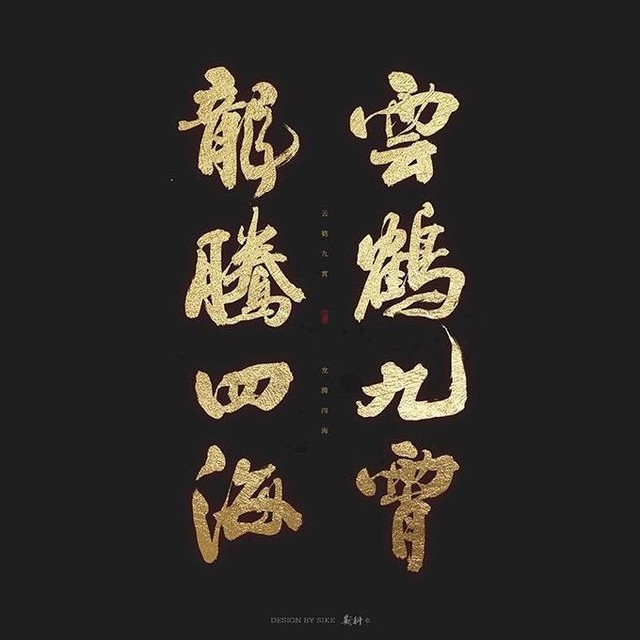 雲鶴九霄
龍騰四海
云鹤九霄
龙腾四海
DESIGN BY SIKE